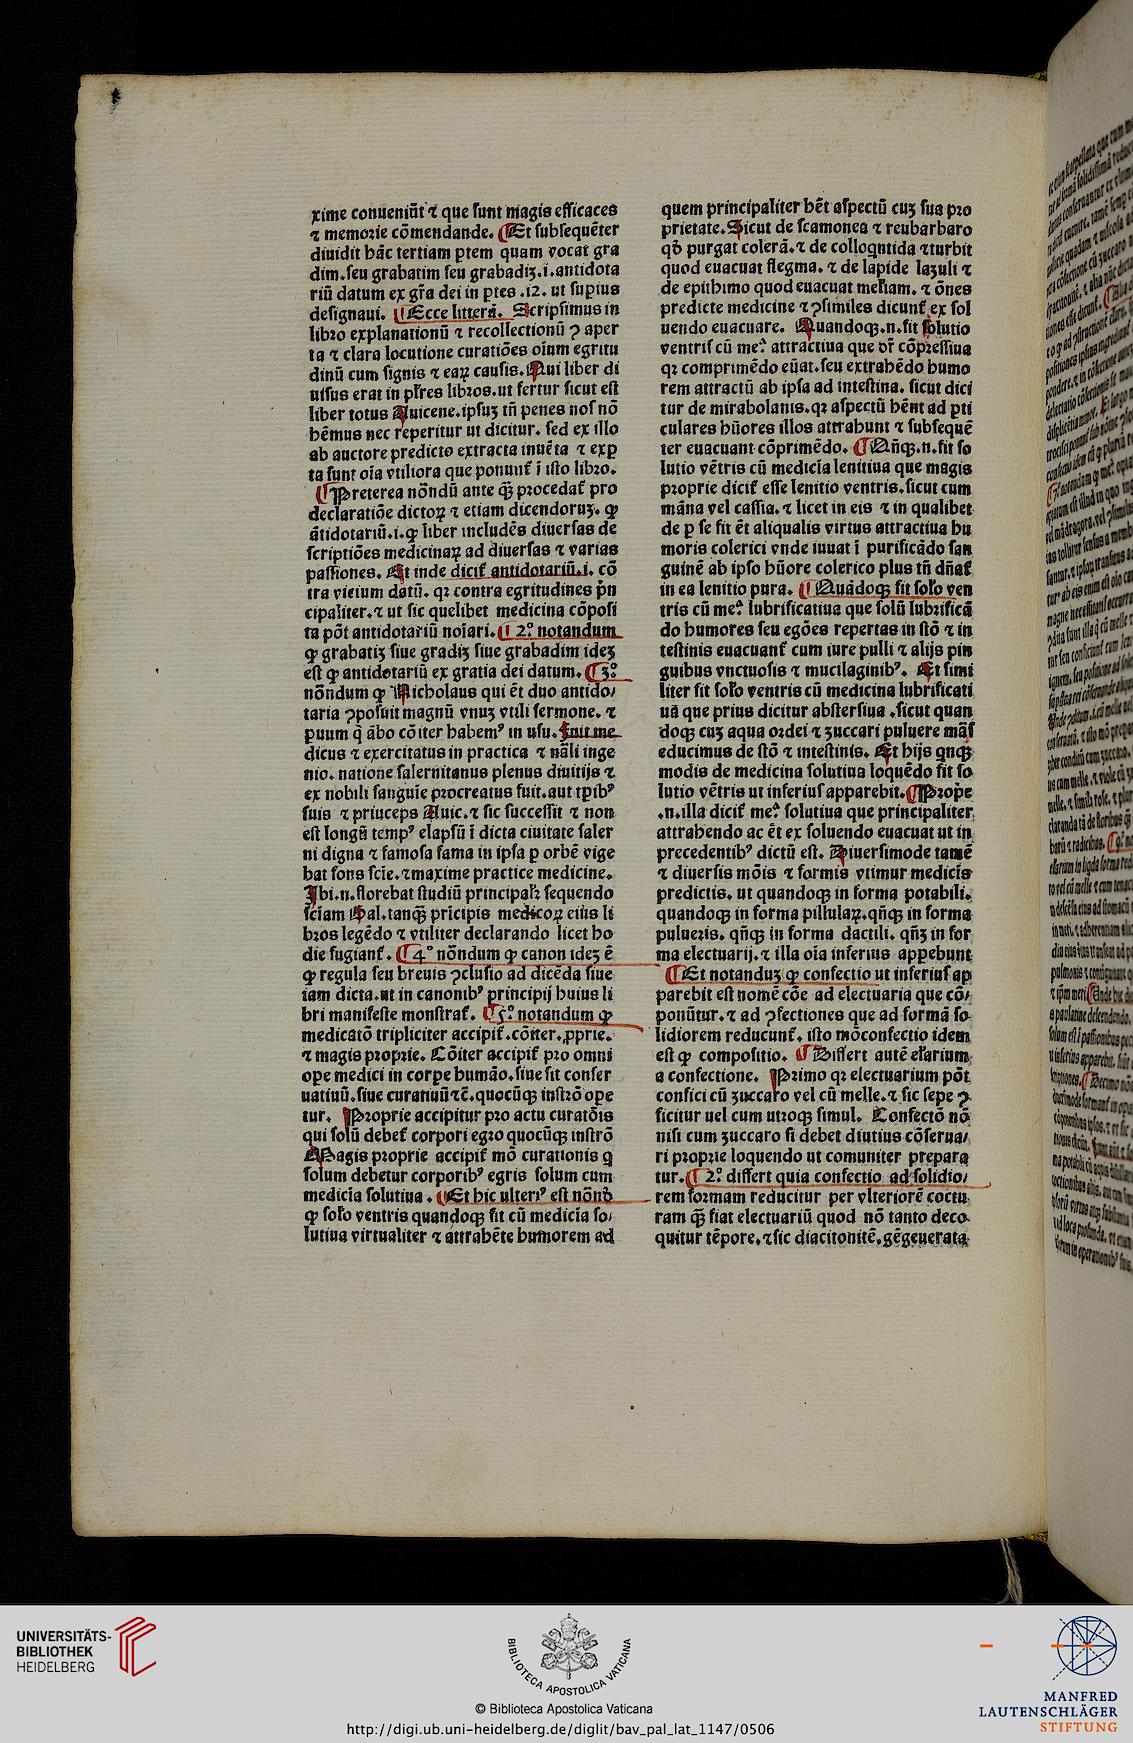 xime conueniūt ⁊ que sunt magis efficaces
⁊ memorie cōmendande. ¶Et subsequēter
diuidit hāc tertiam ꝑtem quam vocat gra
dim.seu grabatim seu grabadiꝫ.i.antidota
riū datum ex gr̄a dei in ꝑtes .12. ut supius
designaui. ¶Ecce littera. Scripsimus in
libro explanationū ⁊ recollectionū ꝯ aper
ta ⁊ clara locutione curatiōes oīum egritu
dinū cum signis ⁊ eaꝝ causis. Qui liber di
uisus erat in pl̄res libros.ut fertur sicut est
liber totus Auicene.ipsuꝫ tn̄ penes nos nō
hēmus nec reperitur ut dicitur. sed ex illo
ab auctore predicto extracta inuēta ⁊ exꝑ
ta sunt oīa vtiliora que ponunt̄ ī isto libro.
¶Preterea nōndū ante qꝫ procedat̄ pro
declaratiōe dictoꝝ ⁊ etiam dicendoruꝫ. ꝙ
ātidotariū.i.ꝙ liber includēs diuersas de
scriptiōes medicinaꝝ ad diuersas ⁊ varias
passiones. Et inde dicit̄ antidotariū.i. cō
tra vicium datū. qꝛ contra egritudines p̄n
cipaliter.⁊ ut sic quelibet medicina cōposi
ta pōt antidotariū noīari. ¶2.° notandum
ꝙ grabatiꝫ siue gradiꝫ siue grabadim ideꝫ
est ꝙ antidotariū ex gratia dei datum. ¶3.°
nōndum ꝙ Nicholaus qui ēt duo antido/
taria ꝯposuit magnū vnuꝫ vtili sermone. ⁊
ꝑuum q̄ ābo cōiter habemꝰ in usu. Fuit me
dicus ⁊ exercitatus in practica ⁊ nāli inge
nio. natione salernitanus plenus diuitijs ⁊
ex nobili sanguīe procreatus fuit.aut tꝑibꝰ
suis ⁊ princeps Auic.⁊ sic successit ⁊ non
est longū tempꝰ elapsū ī dicta ciuitate saler
ni digna ⁊ famosa fama in ipsa ꝑ orbē vige
bat fons scīe.⁊maxime practice medicine.
Ibi.n.florebat studiū principalꝛ sequendo
scīam Gal.tanqꝫ prīcipis medicoꝝ eius li
bros legēdo ⁊ vtiliter declarando licet ho
die fugiant̄. ¶4.° nōndum ꝙ canon ideꝫ ē
ꝙ regula seu breuis ꝯclusio ad dicēda siue
iam dicta.ut in canonibꝰ principij huius li
bri manifeste monstrat̄. ¶5.° notandum ꝙ
medicatō tripliciter accipit̄.cōiter.ꝓprie.
⁊ magis proprie. Cōiter accipit̄ pro omni
ope medici in corpe humāo.siue sit conser
uatiuū.siue curatiuū ⁊c̄.quocūqꝫ instrō ope
tur. Proprie accipitur pro actu curatōis
qui solū debet̄ corpori egro quocūqꝫ instrō
Magis proprie accipit̄ mō curationis q
solum debetur corporibꝰ egris solum cum
medicīa solutiua . ¶Et hic ulteriꝰ est nōnd
ꝙ solo ventris quandoqꝫ fit cū medicīa so/
lutiua virtualiter ⁊ attrahēte humorem ad
quem principaliter hēt aspectū cuꝫ sua pro
prietate.Sicut de scamonea ⁊ reubarbaro
qd purgat colerā.⁊ de colloquntida ⁊turbit
quod euacuat flegma. ⁊ de lapide lazuli ⁊
de epithimo quod euacuat meliam. ⁊ ōnes
predicte medicine ⁊ ꝯsimiles dicunt̄ ex sol
uendo euacuare. Quandoqꝫ.n.fit solutio
ventris cū me.ª attractiua que dr̄ cōpressiua
qꝛ comprimēdo eūat.seu extrahēdo humo
rem attractū ab ipsa ad intestina. sicut dici
tur de mirabolanis.qꝛ aspectū hēnt ad ꝑti
culares hūores illos attrahunt ⁊ subsequē
ter euacuant cōprimēdo. ¶Qn̄qꝫ.n.fit so
lutio vētris cū medicīa lenitiua que magis
proprie dicit̄ esse lenitio ventris.sicut cum
māna vel cassia. ⁊ licet in eis ⁊ in qualibet
de ꝑ se sit ēt aliqualis virtus attractiua hu
moris colerici vnde iuuat ī purificādo san
guinē ab ipso hūore colerico plus tn̄ dn̄at̄
in ea lenitio pura. ¶Quādoqꝫ fit solo ven
tris cū me.ª lubrificatiua que solū lubrificā
do humores seu egōes repertas in stō ⁊ in
testinis euacuant̄ cum iure pulli ⁊ alijs pin
guibus vnctuosis ⁊ mucilaginibꝰ. Et simi
liter fit solo ventris cū medicina lubrificati
ua que prius dicitur abstersiua .sicut quan
doqꝫ cuꝫ aqua ordei ⁊ zuccari puluere mās
educimus de stō ⁊ intestinis. Et hijs qnqꝫ
modis de medicina solutiua loquēdo fit so
lutio vētris ut inferius apparebit.¶Prope
.n.illa dicit̄ me.ª solutiua que principaliter
attrahendo ac ēt ex soluendo euacuat ut in
precedentibꝰ dictū est. Diuersimode tamē
⁊ diuersis mōis ⁊ formis vtimur medicīs
predictis. ut quandoqꝫ in forma potabili.
quandoqꝫ in forma pillulaꝝ.qn̄qꝫ in forma
pulueris. qn̄qꝫ in forma dactili. qn̄ꝫ in for
ma electuarij.⁊ illa oīa inferius apꝑebunt
¶Et notanduꝫ ꝙ confectio ut inferius ap
parebit est nomē cōe ad electuaria que cō/
ponūtur.⁊ ad ꝯfectiones que ad formā so
lidiorem reducunt̄. isto mō confectio idem
est ꝙ compositio. ¶Differt autē elarium
a confectione. Primo qꝛ electuarium pōt
confici cū zuccaro vel cū melle.⁊ sic sepe ꝯ
ficitur uel cum utroqꝫ simul. Confectō nō
nisi cum zuccaro si debet diutius cōserua/
ri proprie loquendo ut comuniter prepara
tur. ¶2.° differt quia confectio ad solidio/
rem formam reducitur per vlteriorē coctu
ram qꝫ fiat electuariū quod nō tanto deco
quitur tēpore.⁊sic diacitonitē.gēgeuerata
UNIVERSITÄTS-
BIBLIOTHEK
HEIDELBERG
BIBLIOTECA APOSTOLICA VATICANA
© Biblioteca Apostolica Vaticana
http://digi.ub.uni-heidelberg.de/diglit/bav_pal_lat_1147/0506
MANFRED
LAUTENSCHLÄGER
STIFTUNG